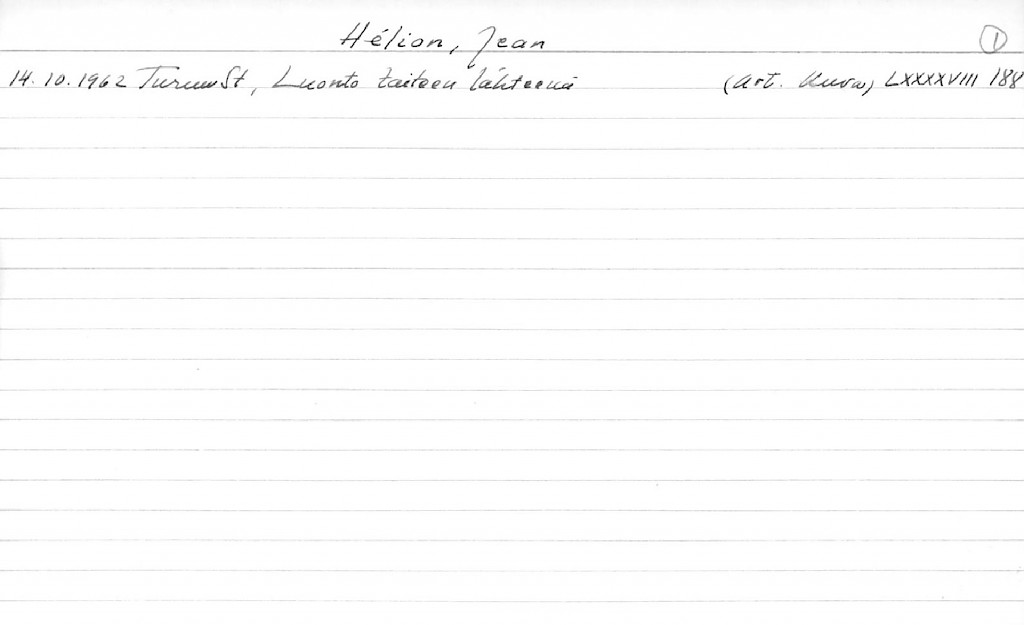 Hélion, Jean 1
14.10.1962 TurunSt, Luonto taiteen lähteenä (Art. Kuva) LXXXXVIII 188